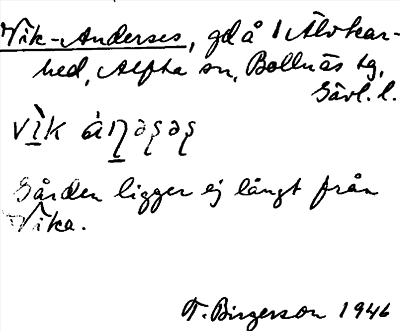 Vik-Anderses, gd å 1 Älvkar-
hed, Alfta sn, Bollnäs tg,
Gävl. l.
Gården ligger ej långt från
Vika.
T. Birgerson 1946